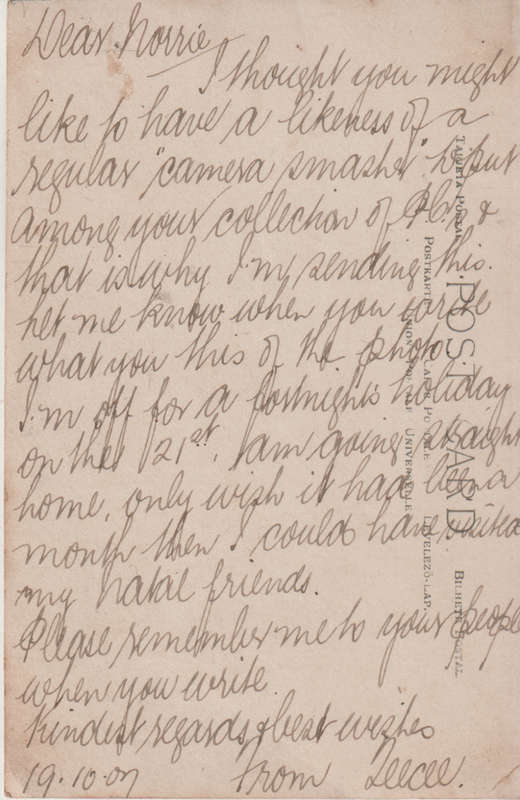 Dear Norrie
I thought you might
like to have a likeness of a
regular "camera smasher" to put
among your collection of P.C.s &
that is why I'm sending this.
Let me know when you write
what you this of the photo
I'm off for a fortnight's holiday
on the 21st. I am going straight
home, only wish it had been a
month then I could have visited
my Natal friends.
Please remember me to your people
when you write.
Kindest regards & best wishes
19.10.07 From
POST CARD.
TARJETA POSTAL
POSTKARTE CARTE POSTALE LEVELEZÖ-LAP.
UNION POSTALE UNIVERSELLE
BILHETE POSTAL